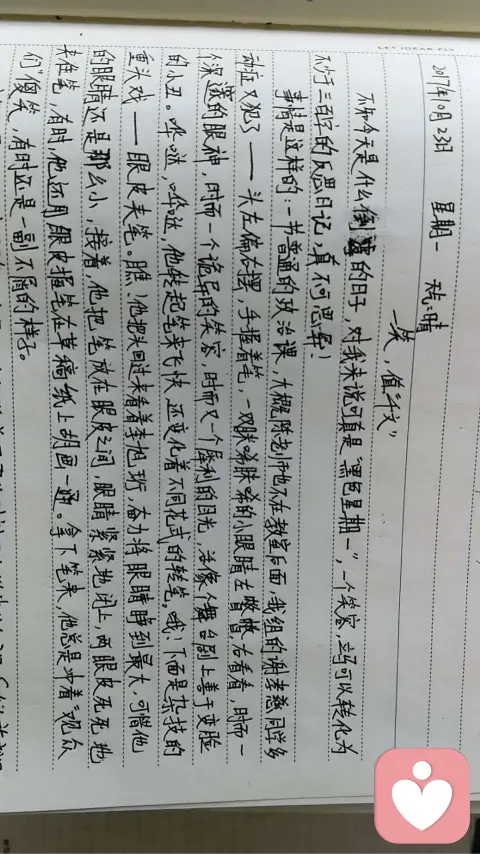 LET IDEAS FLY
2017年10月23日 星期一 秋:晴
一笑，值"千文"
不知今天是什么倒霉的日子，对我来说可真是"黑色星期一"，一个笑容，立马可以转化为
不少于三百字的反思日记，真不可思异！
事情是这样的：一节普通的政治课，大概陈老师他不在教室后面，我组的谢孝慈同学多
动症又犯了——头左偏右摆，手握着笔，一双眯哧眯哧的小眼睛左瞅瞅右看看，时而一
个深邃的眼神，时而一个诡异的笑容，时而又一个犀利的目光，活像个舞台剧上善于变脸
的小丑。哗哒，哗哒，他转起笔来飞快，还变化着不同花式的转笔。哦！下面是杂技的
重头戏——眼皮夹笔。瞧！他把头回过来看着李旭，奋力将眼睛睁到最大，可惜他
的眼睛还是那么小，接着，他把笔放在眼皮之间，眼睛紧紧地闭上，两眼皮死死地
夹住笔，有时，他还用眼皮握笔在草稿纸上胡画一通。拿下笔来，他总是冲着"观众
们"傻笑，有时还是一副不屑的样子。